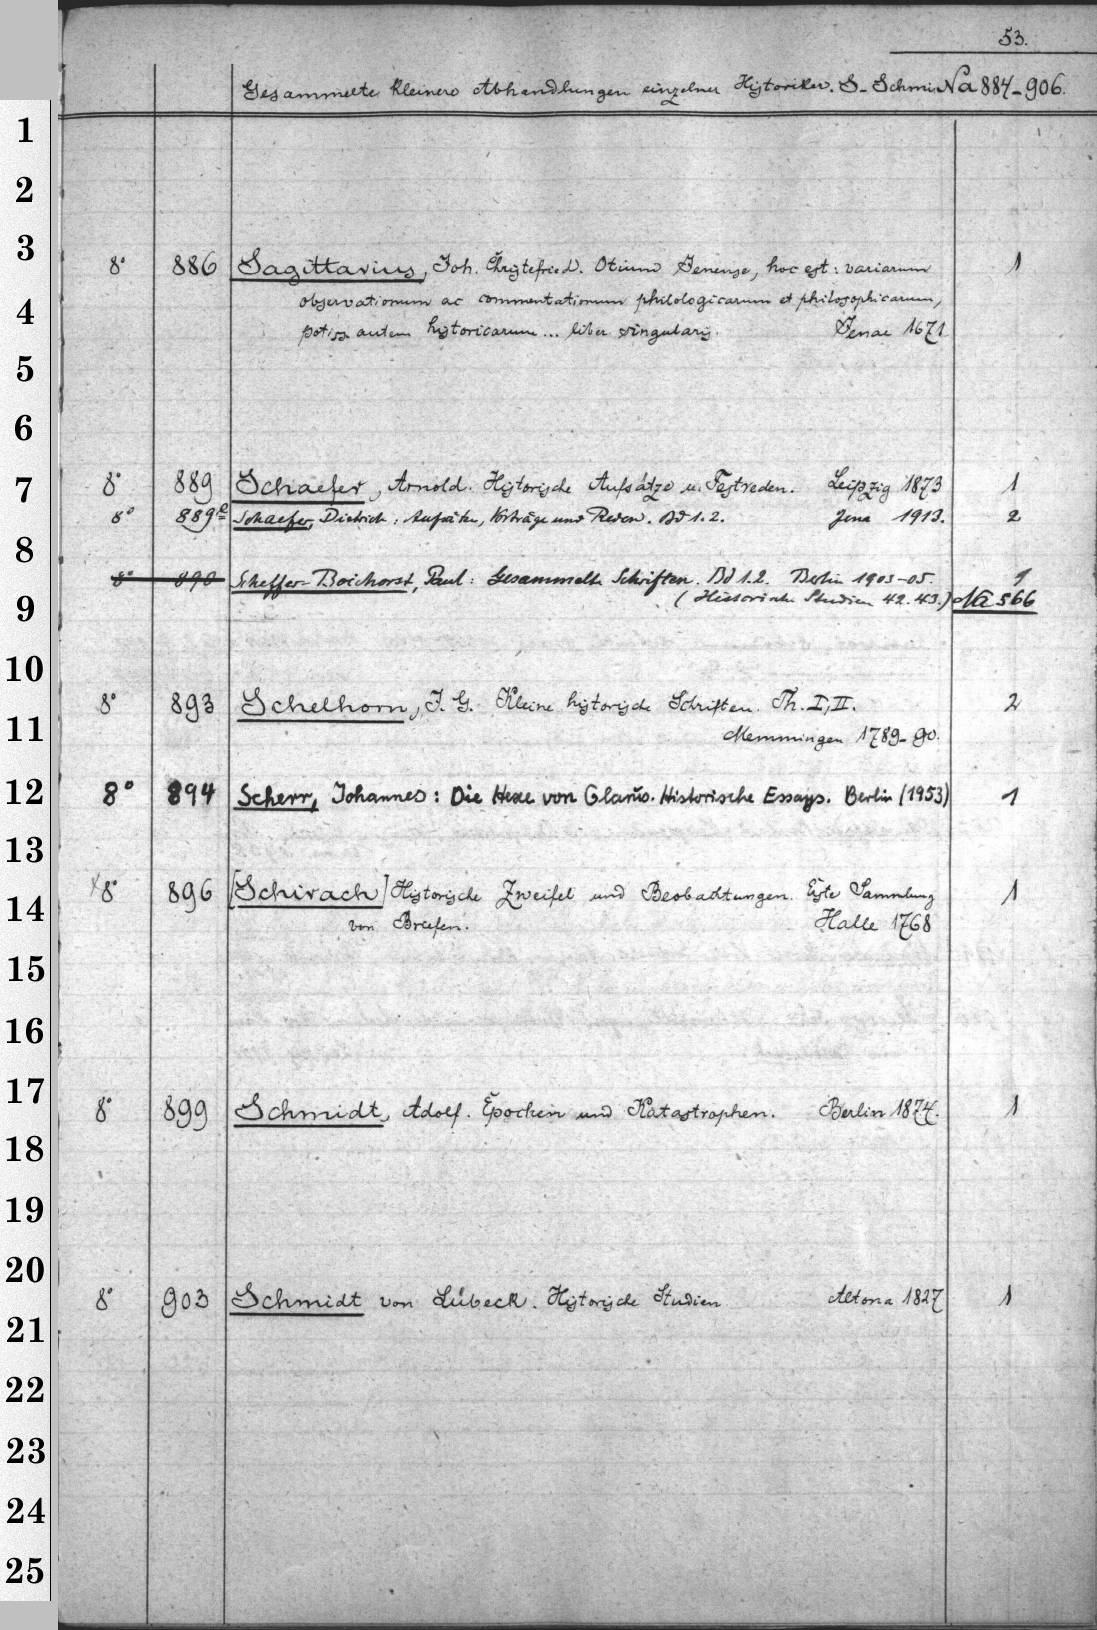 53.
Gesammelte kleinere Abhandlungen einzelner Historiker. S - Schmi Na 884-906.
1
2
3
8° 886 Sagittarius, Joh. Christfried. Otium Jenense, hoc est: variarum 1
observationum ac commentationum philologicarum et philosophicarum,
4
potiss. autem historicarum ... liber singularis. Jenae 1671
5
6
7 8° 889 Schaefer, Arnold. Historische Aufsätze u. Festreden. Leipzig 1873 1
8° 889a Schaefer, Dietrich: Aufsätze, Vorträge und Reden. Bd 1.2. Jena 1913. 2
8
8° 890 Scheffer-Boichorst, Paul: Gesammelte Schriften. Bd 1.2. Berlin 1903-05. 1
9 (Historische Studien 42. 43.) Na 566
10
8° 893 Schelhorn, J. G. Kleine historische Schriften. Th. I, II. 2
11 Memmingen 1789-90.
12 8° 894 Scherr, Johannes: Die Hexe von Glarus. Historische Essays. Berlin (1953) 1
13
x 8° 896 [Schirach] Historische Zweifel und Beobachtungen. Erste Sammlung 1
14
von Briefen. Halle 1768
15
16
17
8° 899 Schmidt, Adolf. Epochen und Katastrophen. Berlin 1874. 1
18
19
20
8° 903 Schmidt von Lübeck. Historische Studien Altona 1827 1
21
22
23
24
25